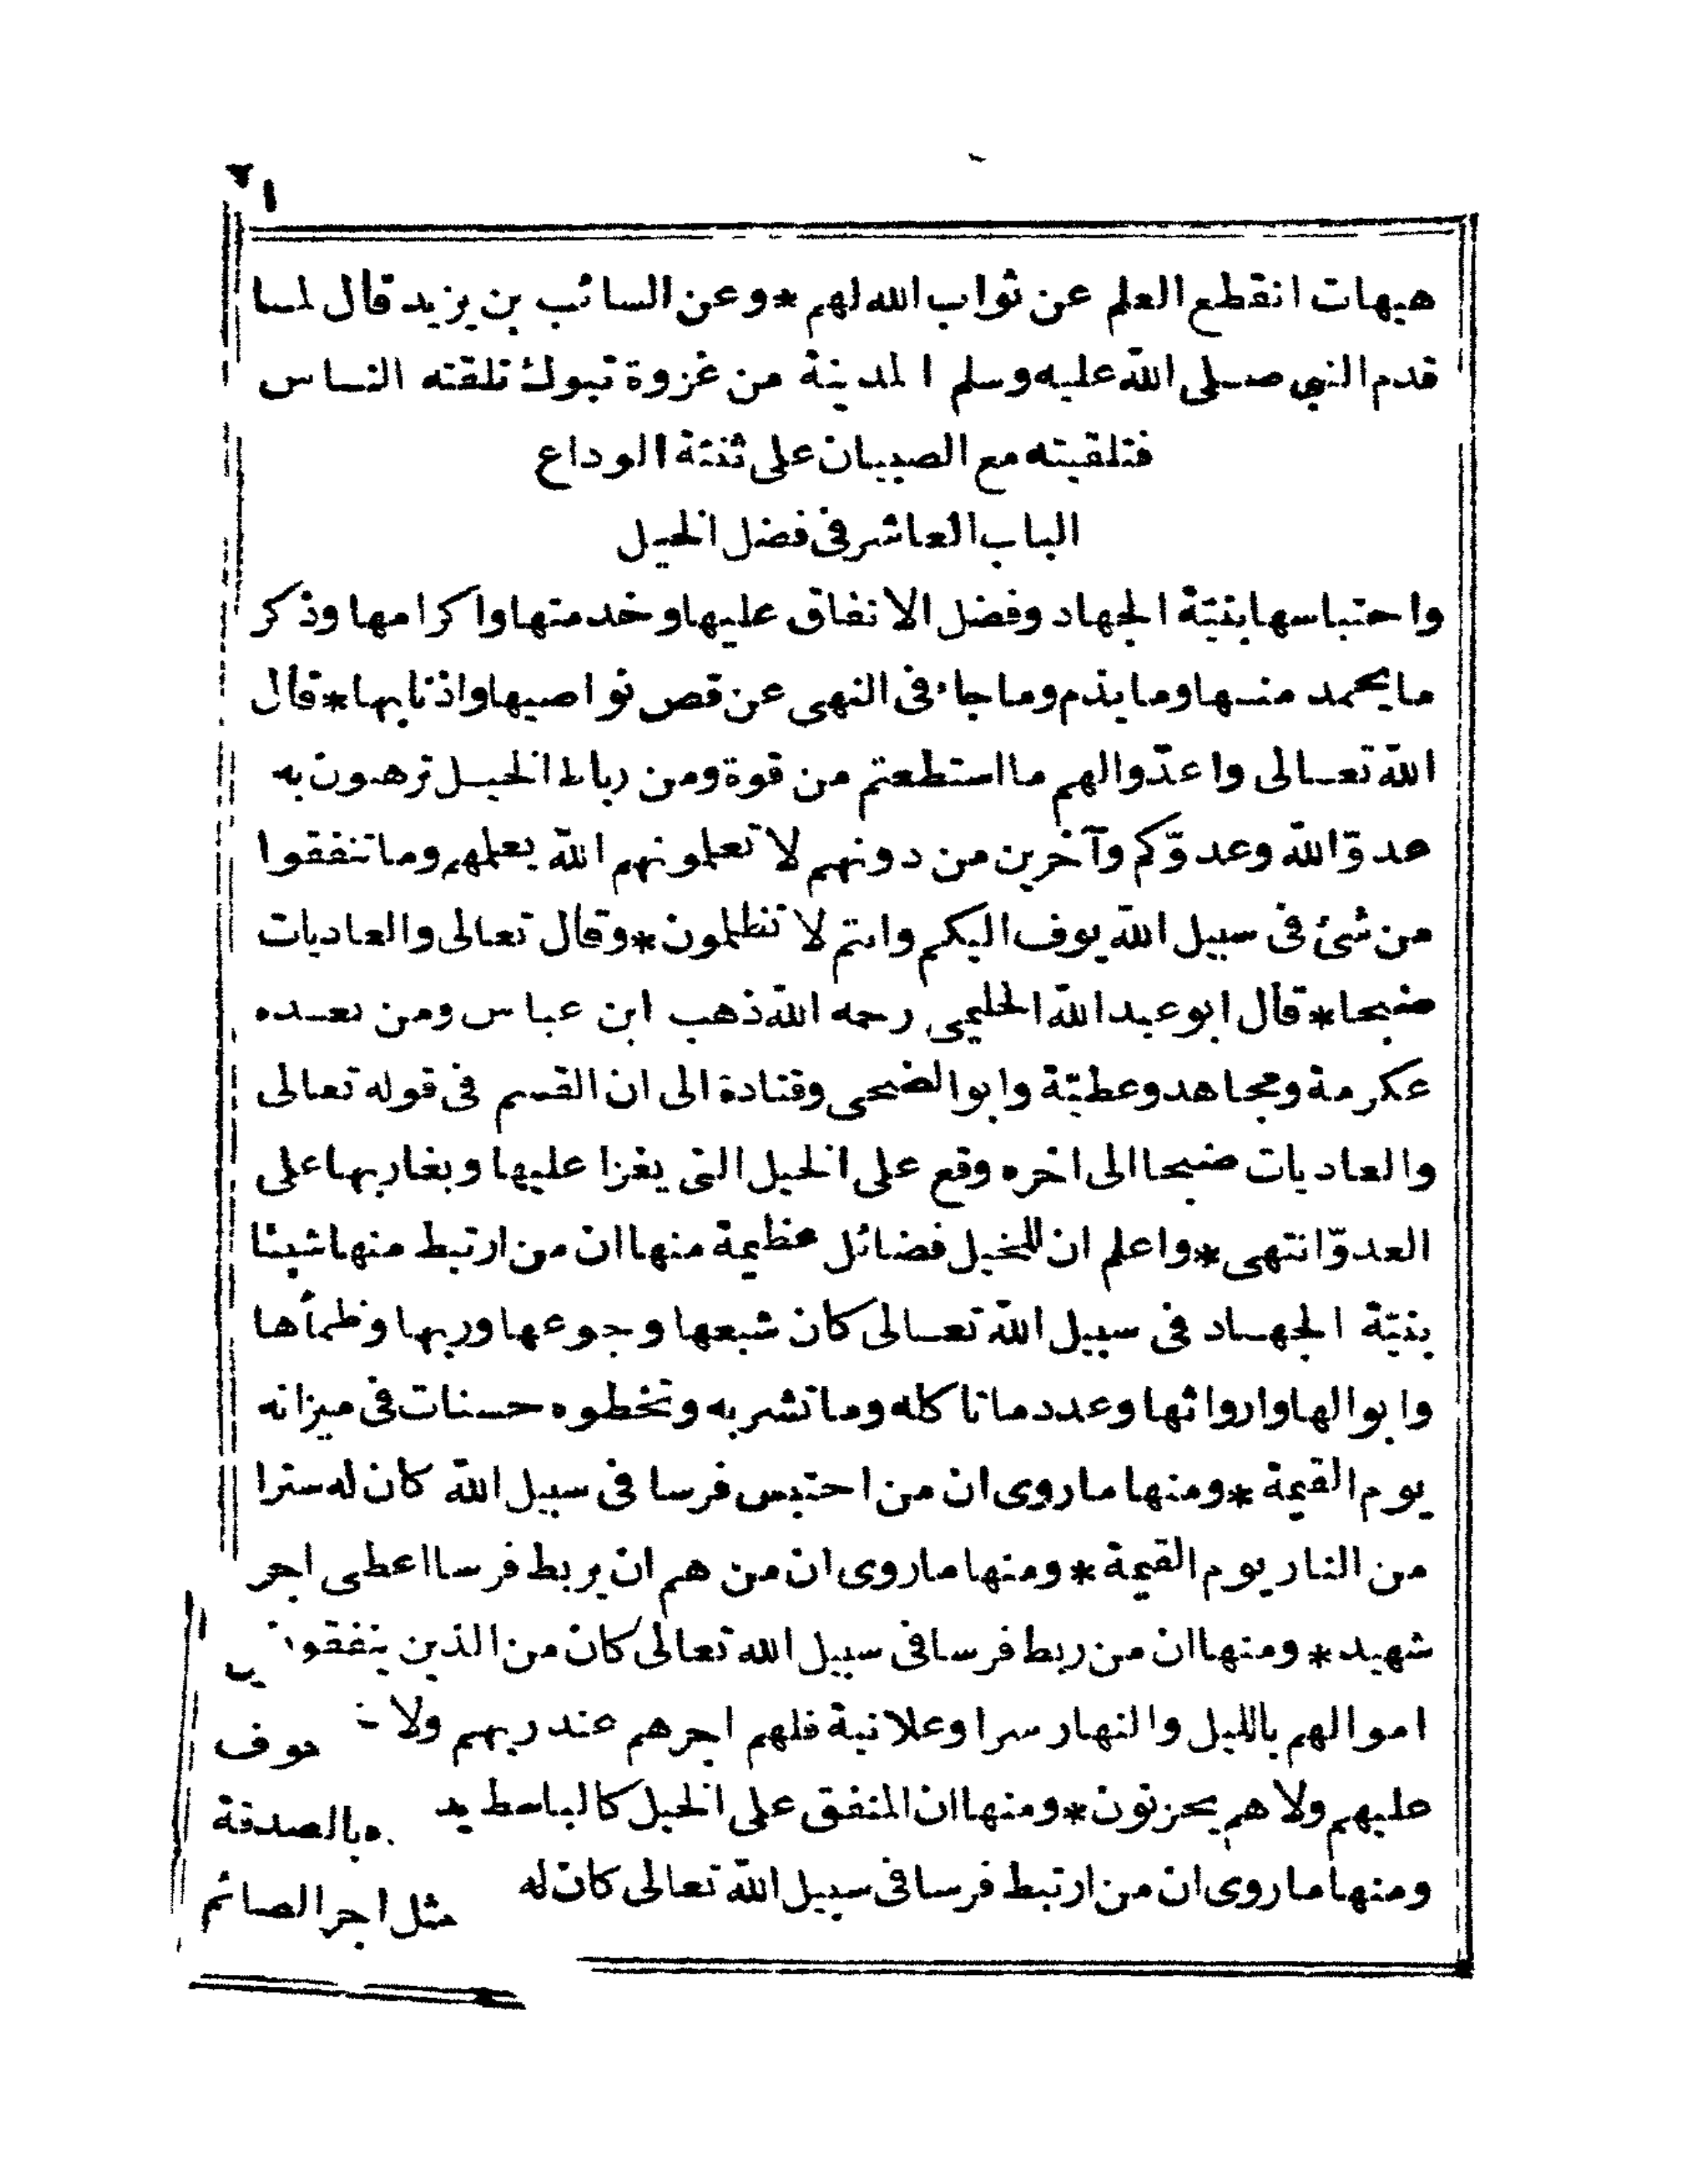 هيهات انقطع العلم عن ثواب الله لهم * وعن السائب بن يزيد قال لما
قدم النبي صلى الله عليه وسلم المدينة من غزوة تبوك تلقته الناس
فتلقيته مع الصبيان على ثنية الوداع
الباب العاشر فى فضل الخيل
واحتباسها بنيّة الجهاد وفضل الانفاق عليها وخدمتها واكرامها وذكر
ما يحمد منها وما يذم وما جاء فى النهى عن قص نواصيها واذنابها * قال
الله تعالى واعدّوا لهم ما استطعتم من قوة ومن رباط الخيل ترهبون به
عدوّ الله وعدوّكم وآخرين من دونهم لا تعلمونهم الله يعلمهم وما تنفقوا
من شئ فى سبيل الله يوف اليكم وانتم لا تظلمون * وقال تعالى والعاديات
ضبحا * قال ابو عبد الله الحليمى رحمه الله ذهب ابن عباس ومن بعده
عكرمة ومجاهد وعطيّة وابو الضحى وقتادة الى ان القسم فى قوله تعالى
والعاديات ضبحا الى اخره وقع على الخيل التى يغزا عليها ويغار بها على
العدوّ انتهى * واعلم ان للخيل فضائل عظيمة منها ان من ارتبط منها شيئا
بنيّة الجهاد فى سبيل الله تعالى كان شبعها وجوعها وريها وظمأها
وابوالها وارواثها وعدد ما تاكله وما تشربه وتخطوه حسنات فى ميزانه
يوم القيمة * ومنها ما روى ان من احتبس فرسا فى سبيل الله كان له سترا
من النار يوم القيمة * ومنها ما روى ان من هم ان يربط فرسا اعطى اجر
شهيد * ومنها ان من ربط فرسا فى سبيل الله تعالى كان من الذين ينفقون
اموالهم بالليل والنهار سرا وعلانية فلهم اجرهم عند ربهم ولا خوف
عليهم ولا هم يحزنون * ومنها ان المنفق على الخيل كالباسط يده بالصدقة
ومنها ما روى ان من ارتبط فرسا فى سبيل الله تعالى كان له مثل اجر الصائم